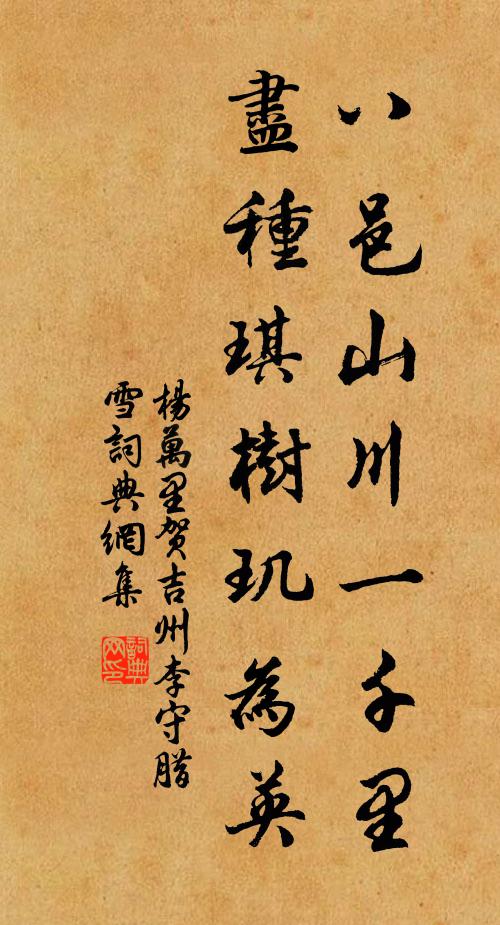 八邑山川一千里
盡種琪樹玑為英
楊萬里賀吉州李守腊
雪詞典網集
詞典
网印